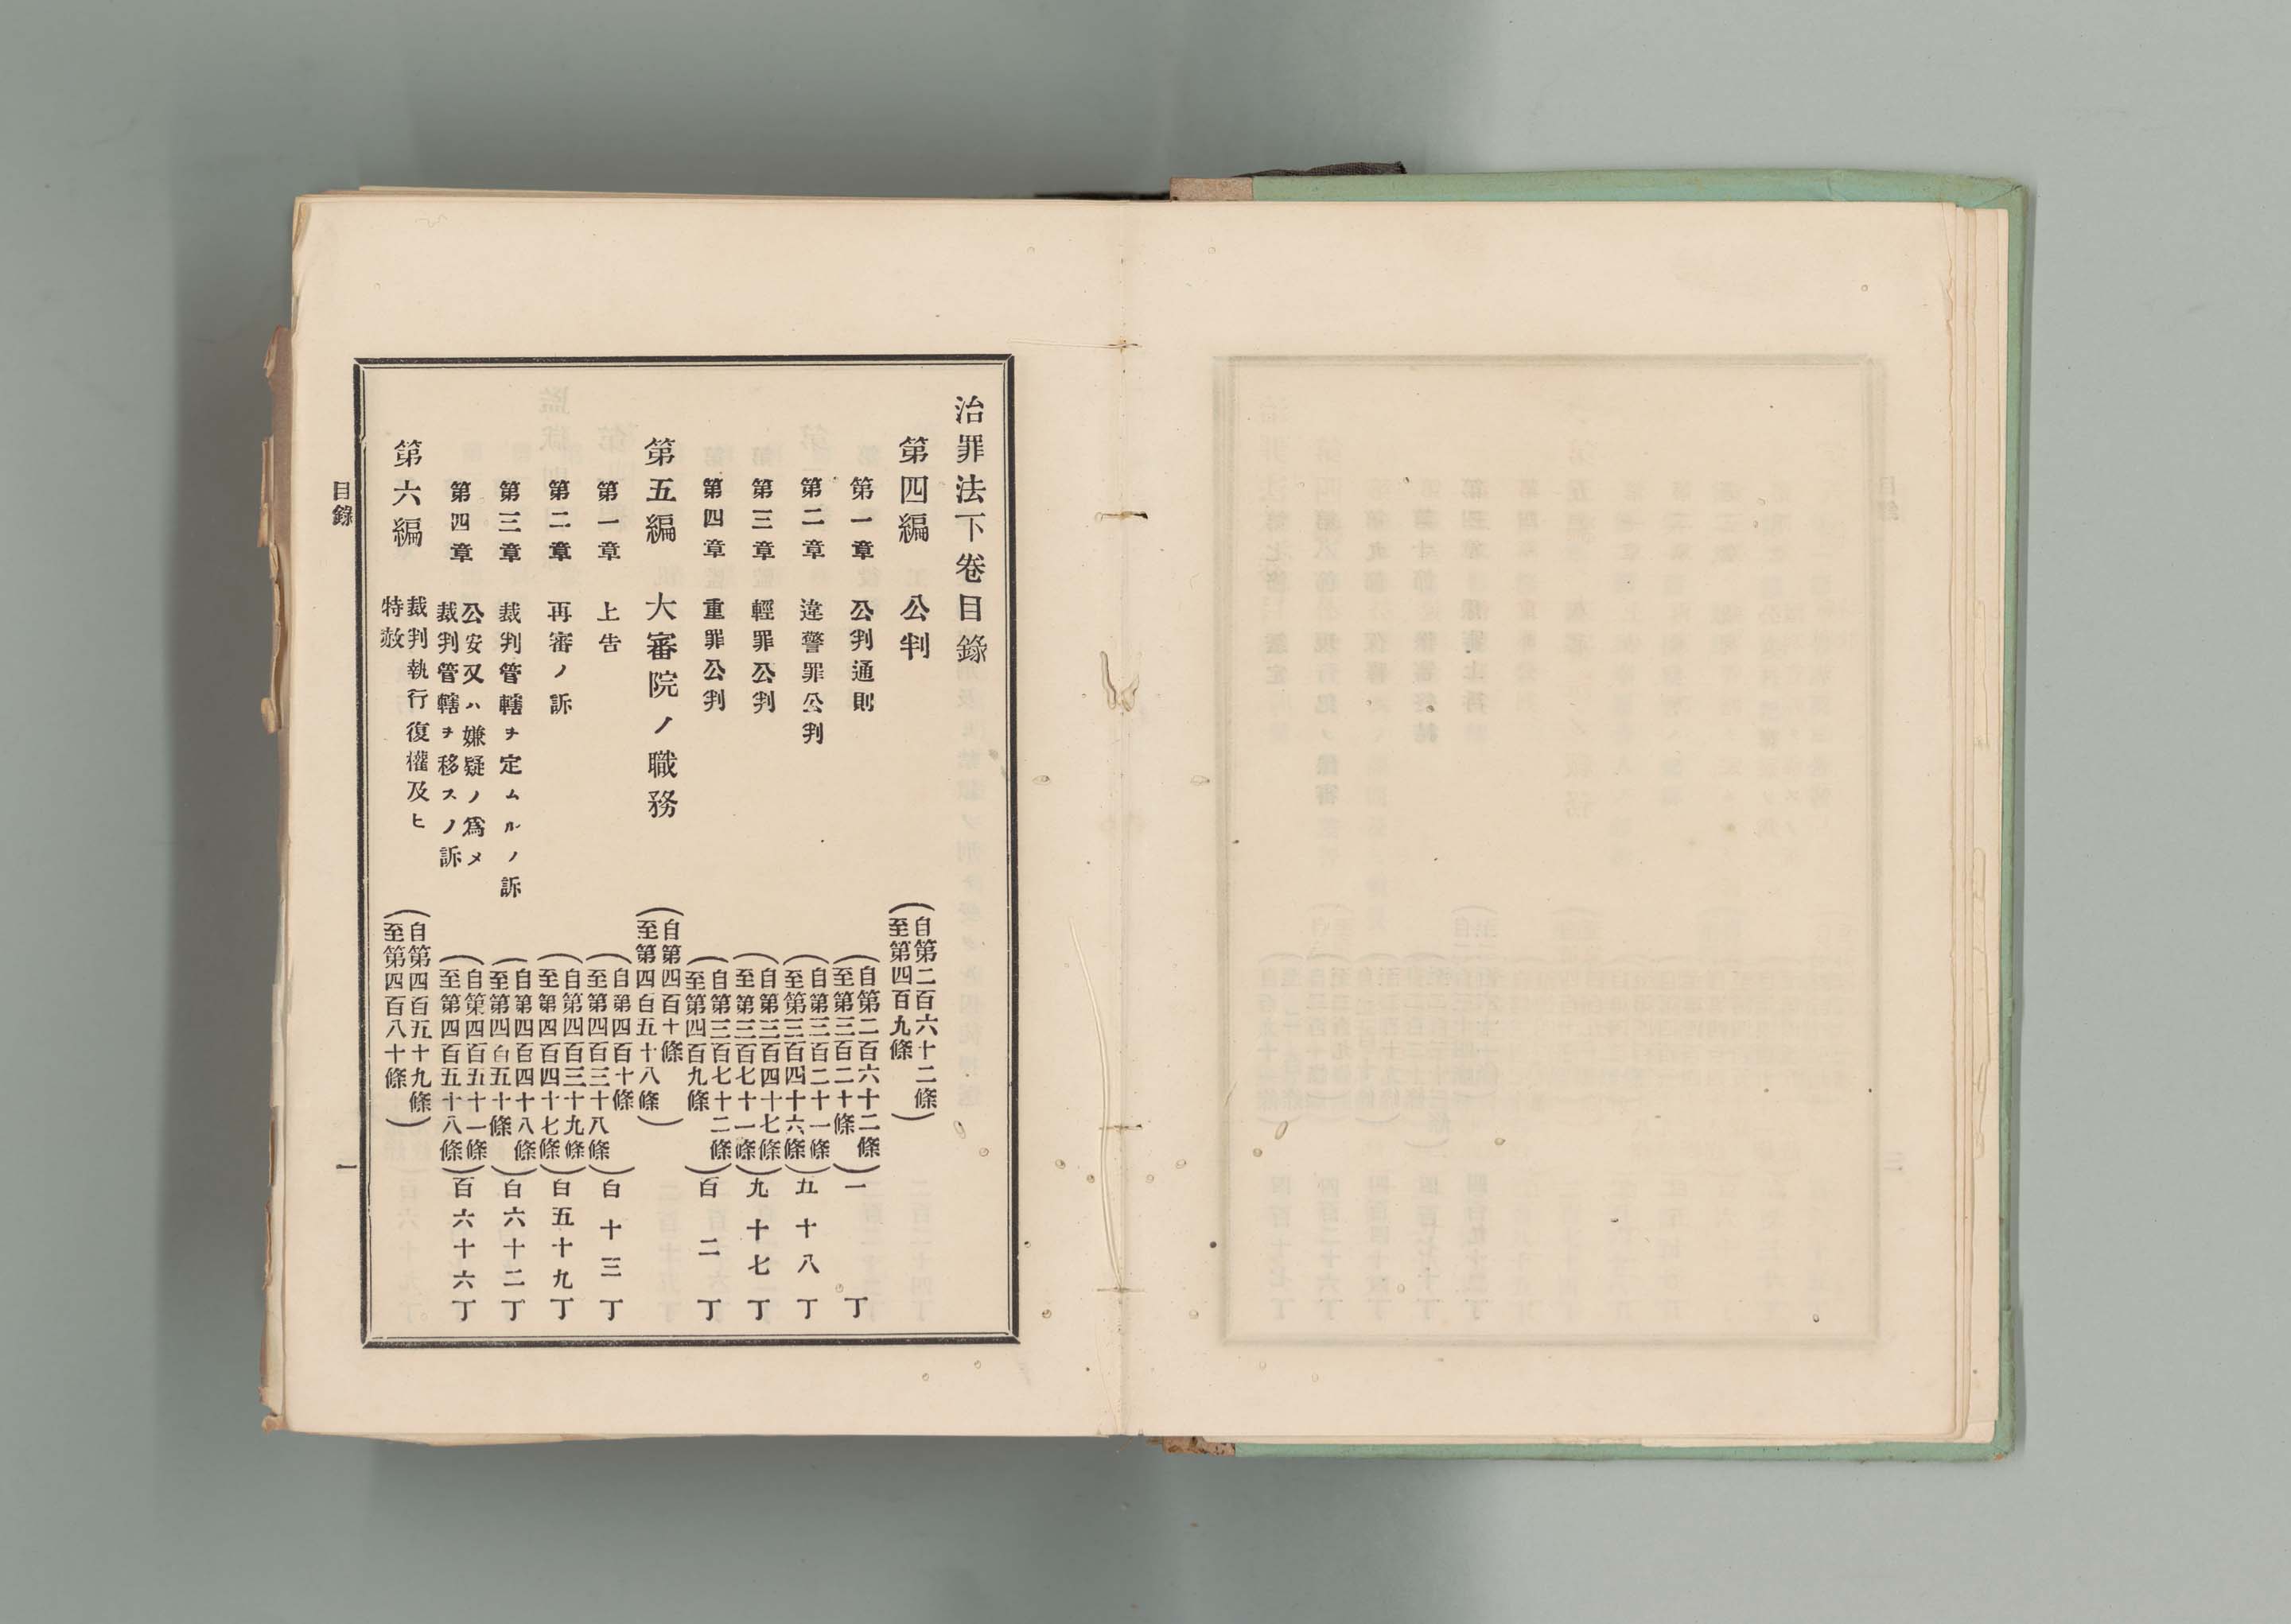 治罪法下卷目錄
第四編 公判 (自第二百六十二條
至第四百九條)
第一章 公判通則 (自第二百六十二條
至第三百二十條) 一丁
第二章 違警罪公判 (自第三百二十一條
至第三百四十六條) 五十八丁
第三章 輕罪公判 (自第三百四十七條
至第三百七十一條) 九十七丁
第四章 重罪公判 (自第三百七十二條
至第四百九條) 百二丁
第五編 大審院ノ職務 (自第四百十條
至第四百五十八條)
第一章 上告 (自第四百十條
至第四百三十八條) 百十三丁
第二章 再審ノ訴 (自第四百三十九條
至第四百四十七條) 百五十九丁
第三章 裁判管轄ヲ定ムルノ訴 (自第四百四十八條
至第四百五十條) 百六十二丁
第四章 公安又ハ嫌疑ノ爲メ
裁判管轄ヲ移スノ訴 (自第四百五十一條
至第四百五十八條) 百六十六丁
第六編 裁判執行復權及ヒ
特赦 (自第四百五十九條
至第四百八十條)
目錄
一